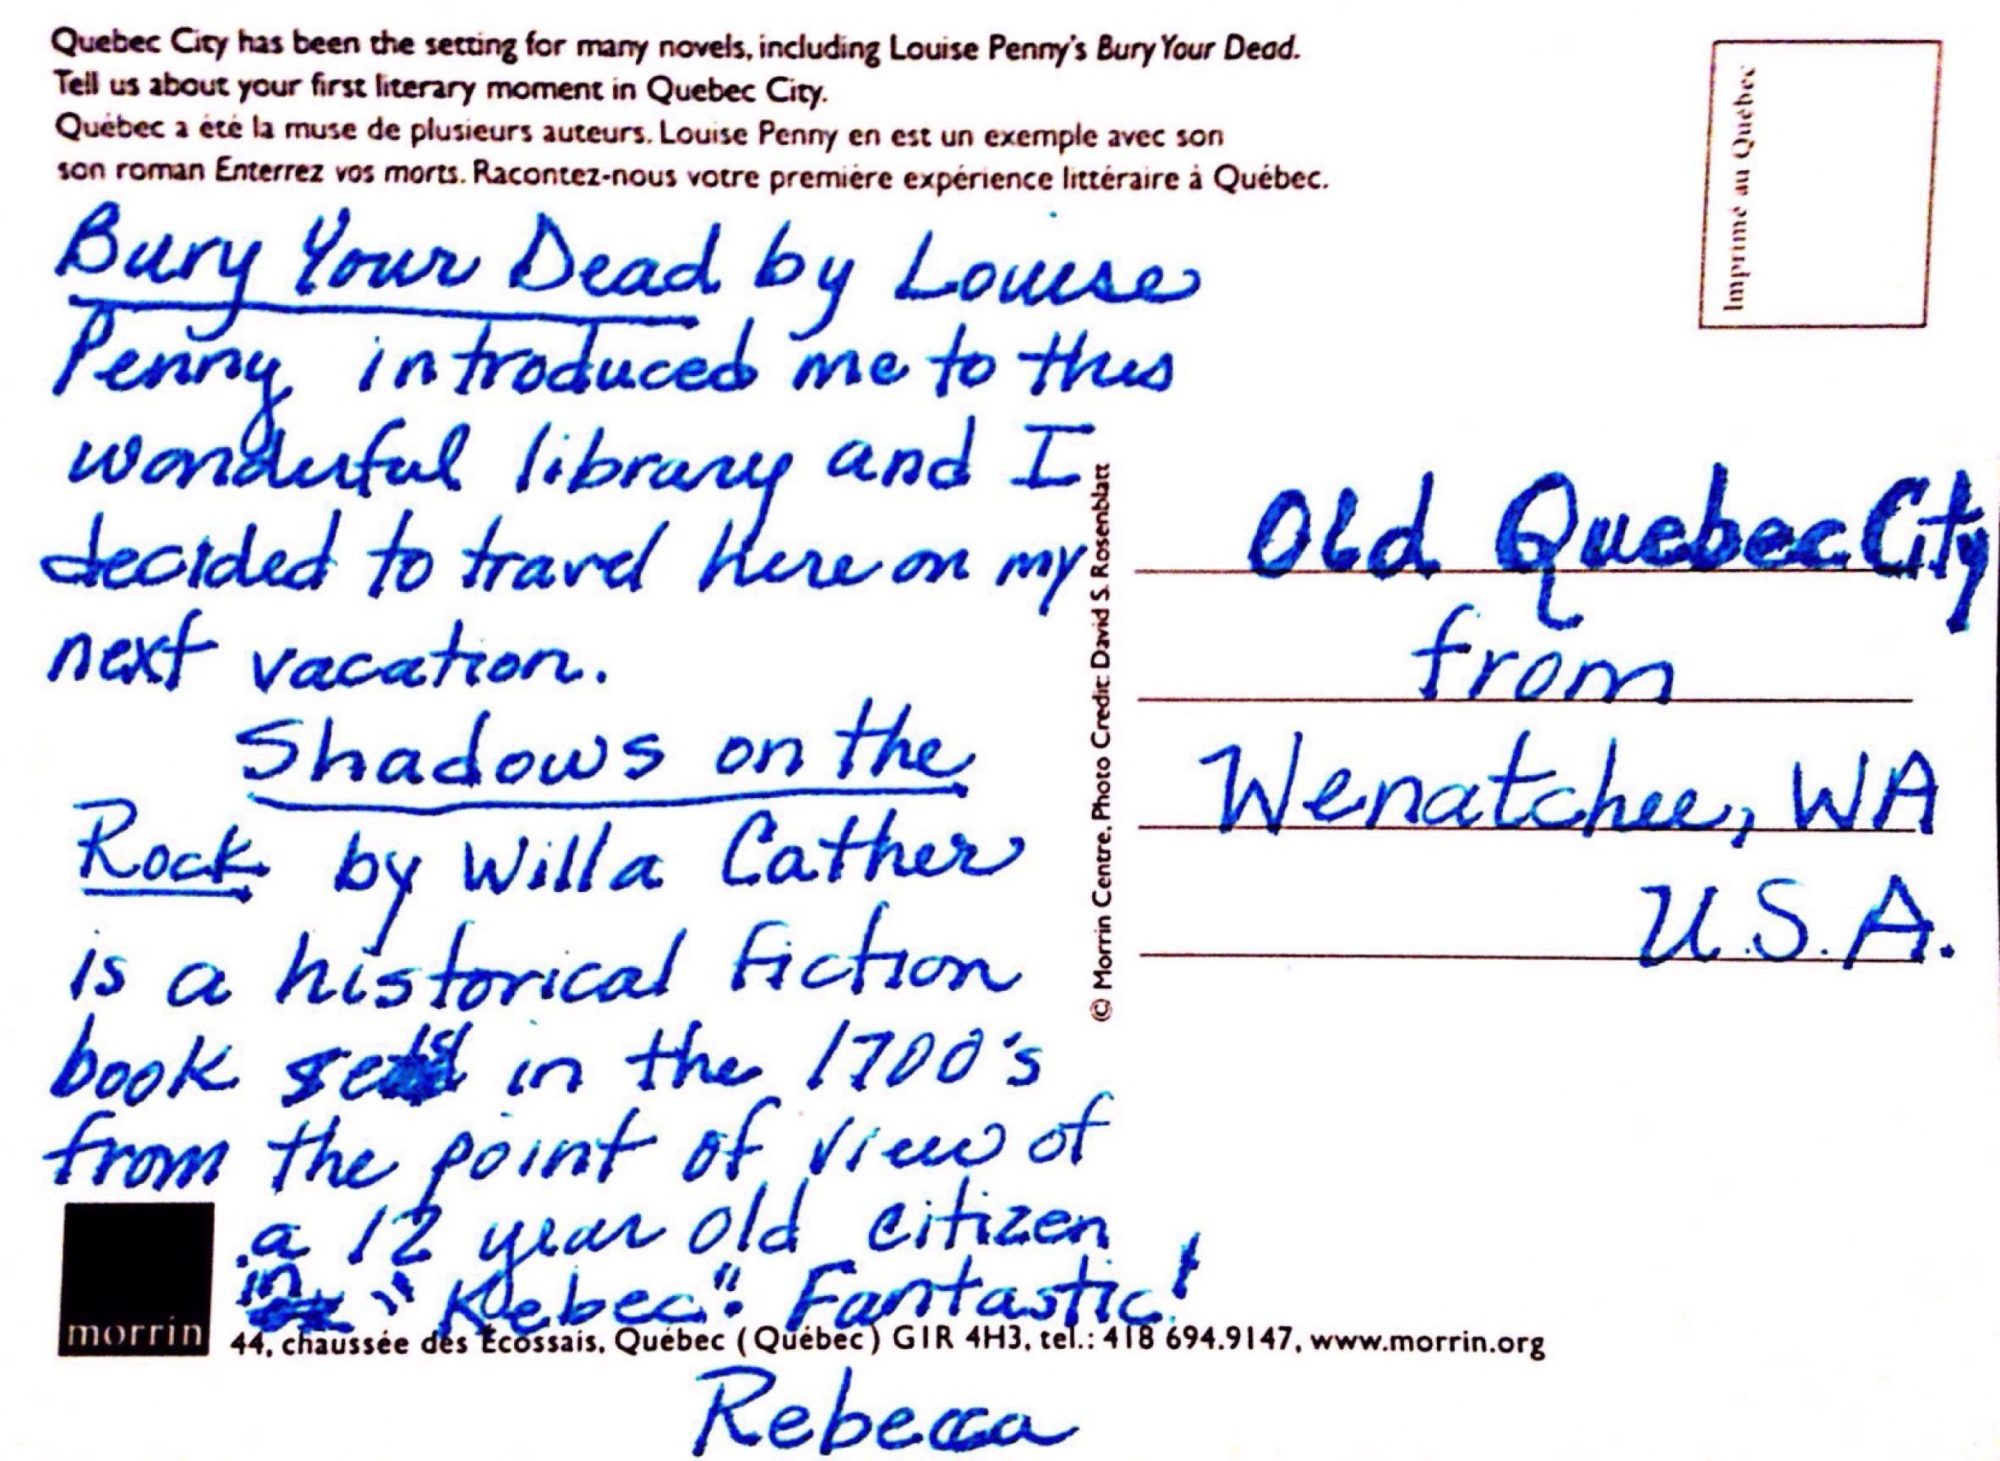 Quebec City has been the setting for many novels, including Louise Penny's Bury Your Dead.
Tell us about your first literary moment in Quebec City.
Québec a été la muse de plusieurs auteurs. Louise Penny en est un exemple avec son
son roman Enterrez vos morts. Racontez-nous votre première expérience littéraire à Québec.
Imprimé au Québec
Bury Your Dead by Louise
Penny introduced me to this
wonderful library and I
decided to travel here on my
next vacation.
Shadows on the
Rock by Willa Cather
is a historical fiction
book set in the 1700's
from the point of view of
a 12 year old citizen
in "Kebec". Fantastic!
Rebecca
© Morrin Centre, Photo Credit: David S. Rosenblatt
Old Quebec City
from
Wenatchee, WA
U.S.A.
morrin
44, chaussée des Écossais, Québec (Québec) G1R 4H3, tel.: 418 694.9147, www.morrin.org